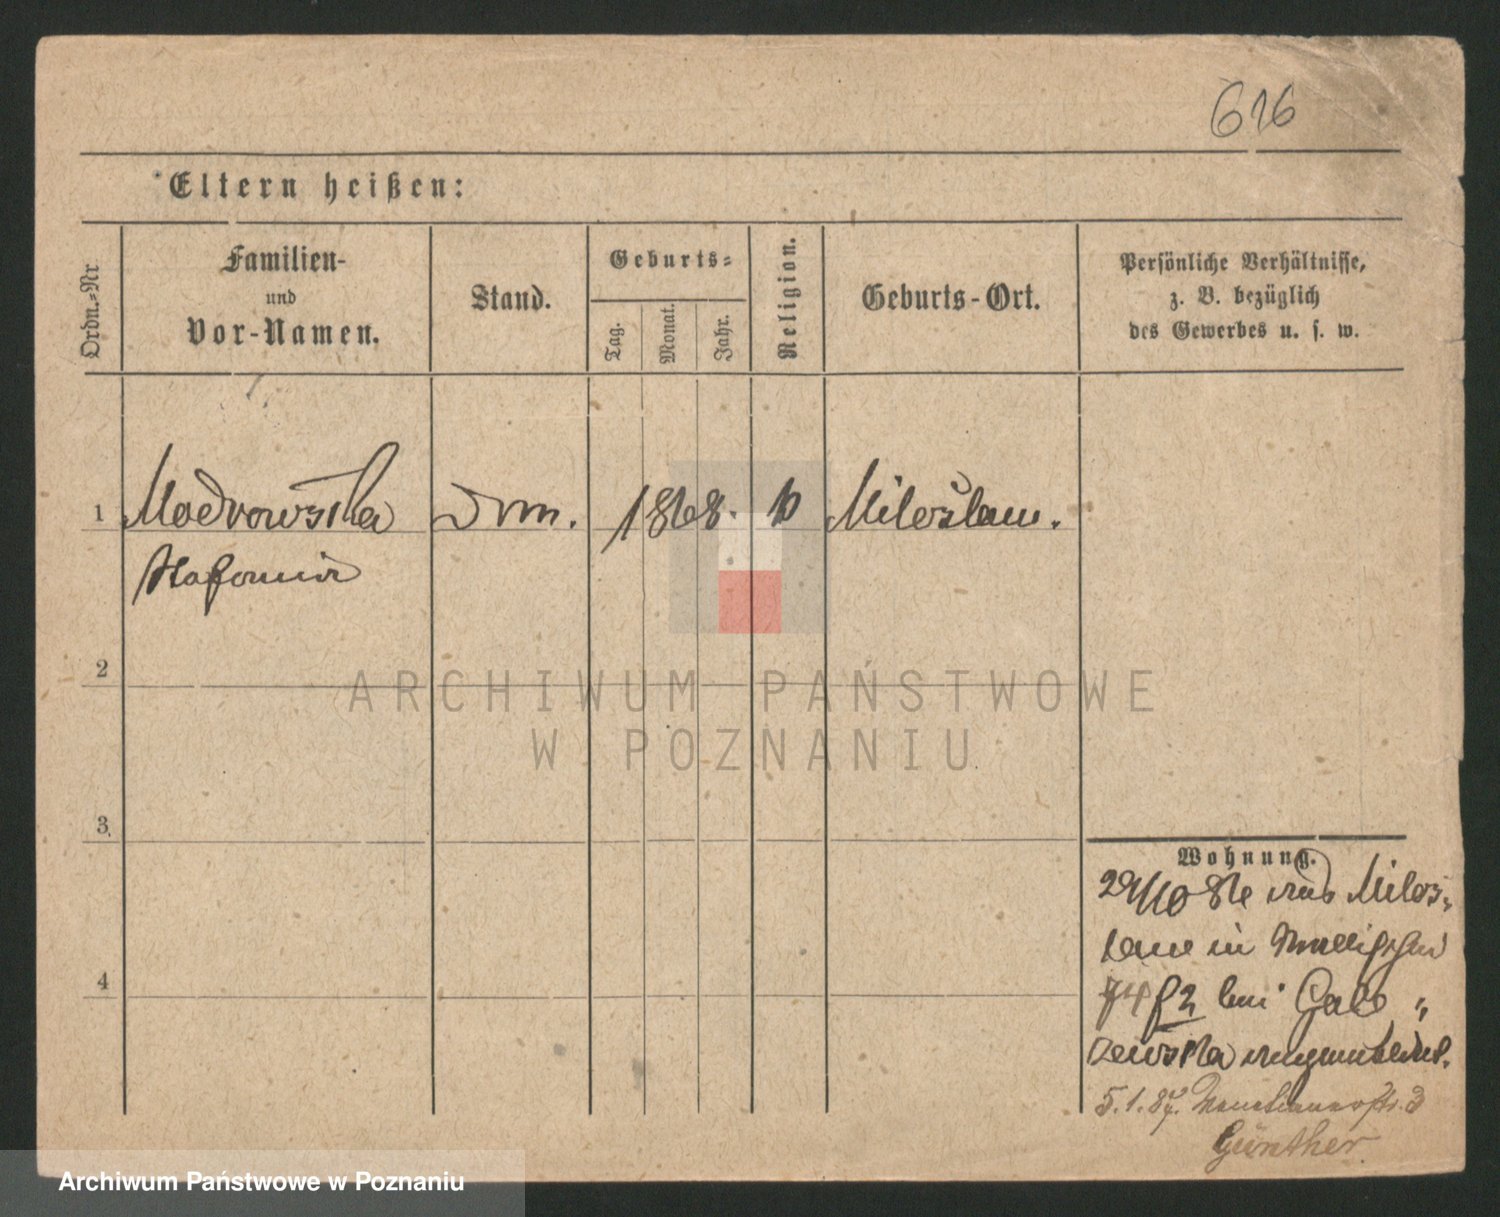 616
Eltern heißen:
Ordn.=Nr
Familien-
und
Vor-Namen.
Stand.
Geburts=
Tag.
Monat.
Jahr.
Religion.
Geburts-Ort.
Persönliche Verhältnisse,
z. B. bezüglich
des Gewerbes u. s. w.
1
Modrowska
1868.
Miloslaw.
2
3
4
Wohnung.
29/10 86 aus Milos„
law in
bei
5. 1. 87. 3
Günther
ARCHIWUM PAŃSTWOWE
W POZNANIU
Archiwum Państwowe w Poznaniu